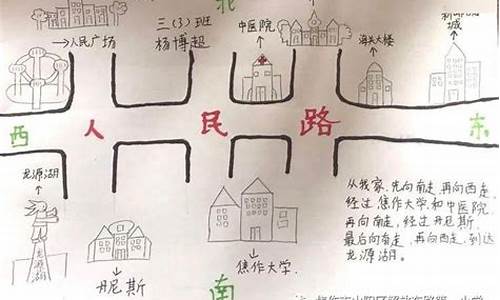 北
三（3）班
杨博超
→人民广场
中医院
海关大楼
城
西 人 民 路 东
龙源湖
龙源湖
丹尼斯
焦作大学.
南
从我家，先向南走，再向西走，
经过焦作大学和中医院，
再向南走，经过丹尼斯，
最后向南走，再向西走，到达
龙源湖。